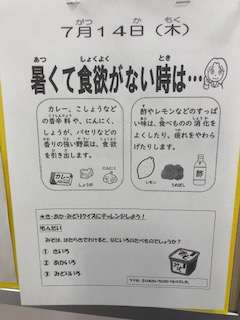 7月14日(木)
がつ か もく
あつ しょくよく とき
暑くて食欲がない時は…
カレー、こしょうなど
の香辛料や、にんにく、
しょうが、パセリなどの
香りの強い野菜は、食欲
を引き出します。
カレー
しょうが
にんにく
酢やレモンなどのすっぱ
い味は、食べものの消化を
よくしたり、疲れをやわら
げたりします。
レモン
うめぼし
酢
★き・あか・みどりクイズにチャレンジしよう!
もんだい
みそは、はたらきでわけると、なにいろのたべものでしょうか?
① きいろ
② あかいろ
③ みどりいろ
みそ